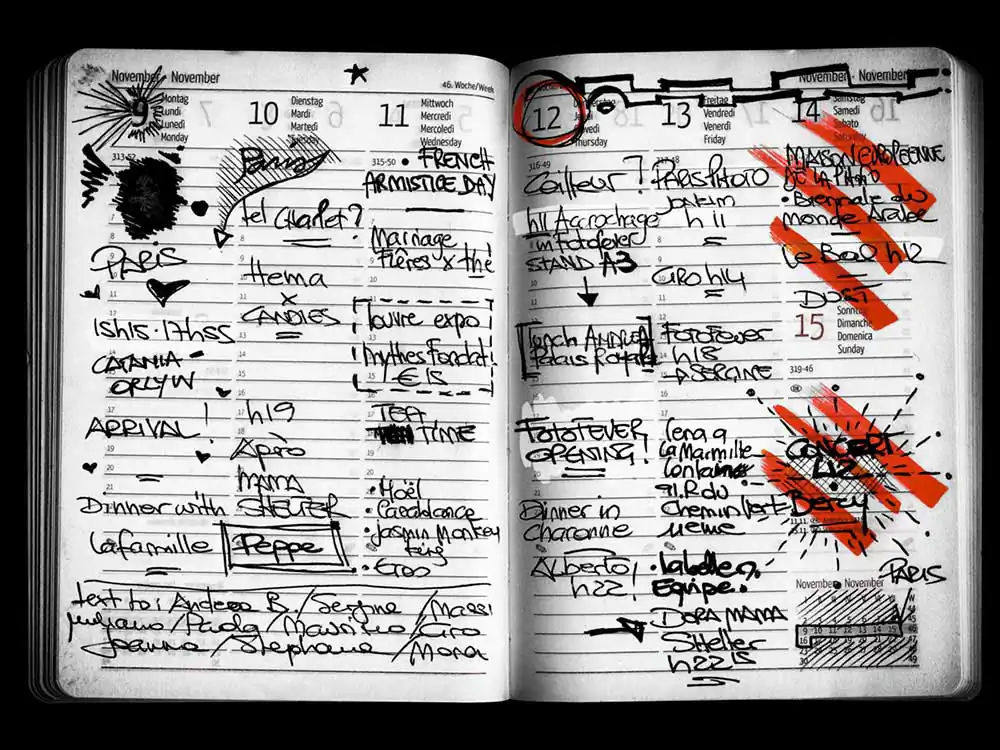 November · November
46. Woche/Week
9
Montag
Lundi
Lunedì
Monday
313-52
PARIS
15h15 · 17h55
CATANIA -
ORLY W
ARRIVAL !
Dinner with
La famille
10
Dienstag
Mardi
Martedì
Tuesday
Paris
tel Charlet?
Hema
x
CANDLES
h19
Apéro
MAMA
SHELTER
Peppe
11
Mittwoch
Mercredi
Mercoledì
Wednesday
315-50
• FRENCH
ARMISTICE DAY
Marriage
Frères x thé
louvre expo
mythes Fondat!
€15
TEA
TIME
• Noël
• Casablanca
• Jasmin Monkey
• Eros
text to: Andrea B. / Sergine / Massi
Giuliano / Paola / Maurizio / Ciro
Joanna / Stephane / Mona
November · November
12
Thursday
316-49
Coiffeur ?
h11 Accrochage
in Fotofever
STAND A3
lunch
Palais Royal
FOTOFEVER
OPENING !
Dinner in
Charonne
Alberto
h22!
13
Freitag
Vendredi
Venerdì
Friday
PARISPHOTO
h11
CIRO h14
FOTOFEVER
h18
SERGINE
La Marmille
91. R du
Chemin Vert
11eme
• la belle
Equipe.
DORA MAMA
SHelter
h22 15
14
Samstag
Samedi
Sabato
Saturday
MAISON EUROPEENNE
DE LA PHOTO
• Biennale du
monde Arabe
Le Bal h12
DUST
15
Sonntag
Dimanche
Domenica
Sunday
319-46
CONCERT
U2
Bercy
PARIS
November · November